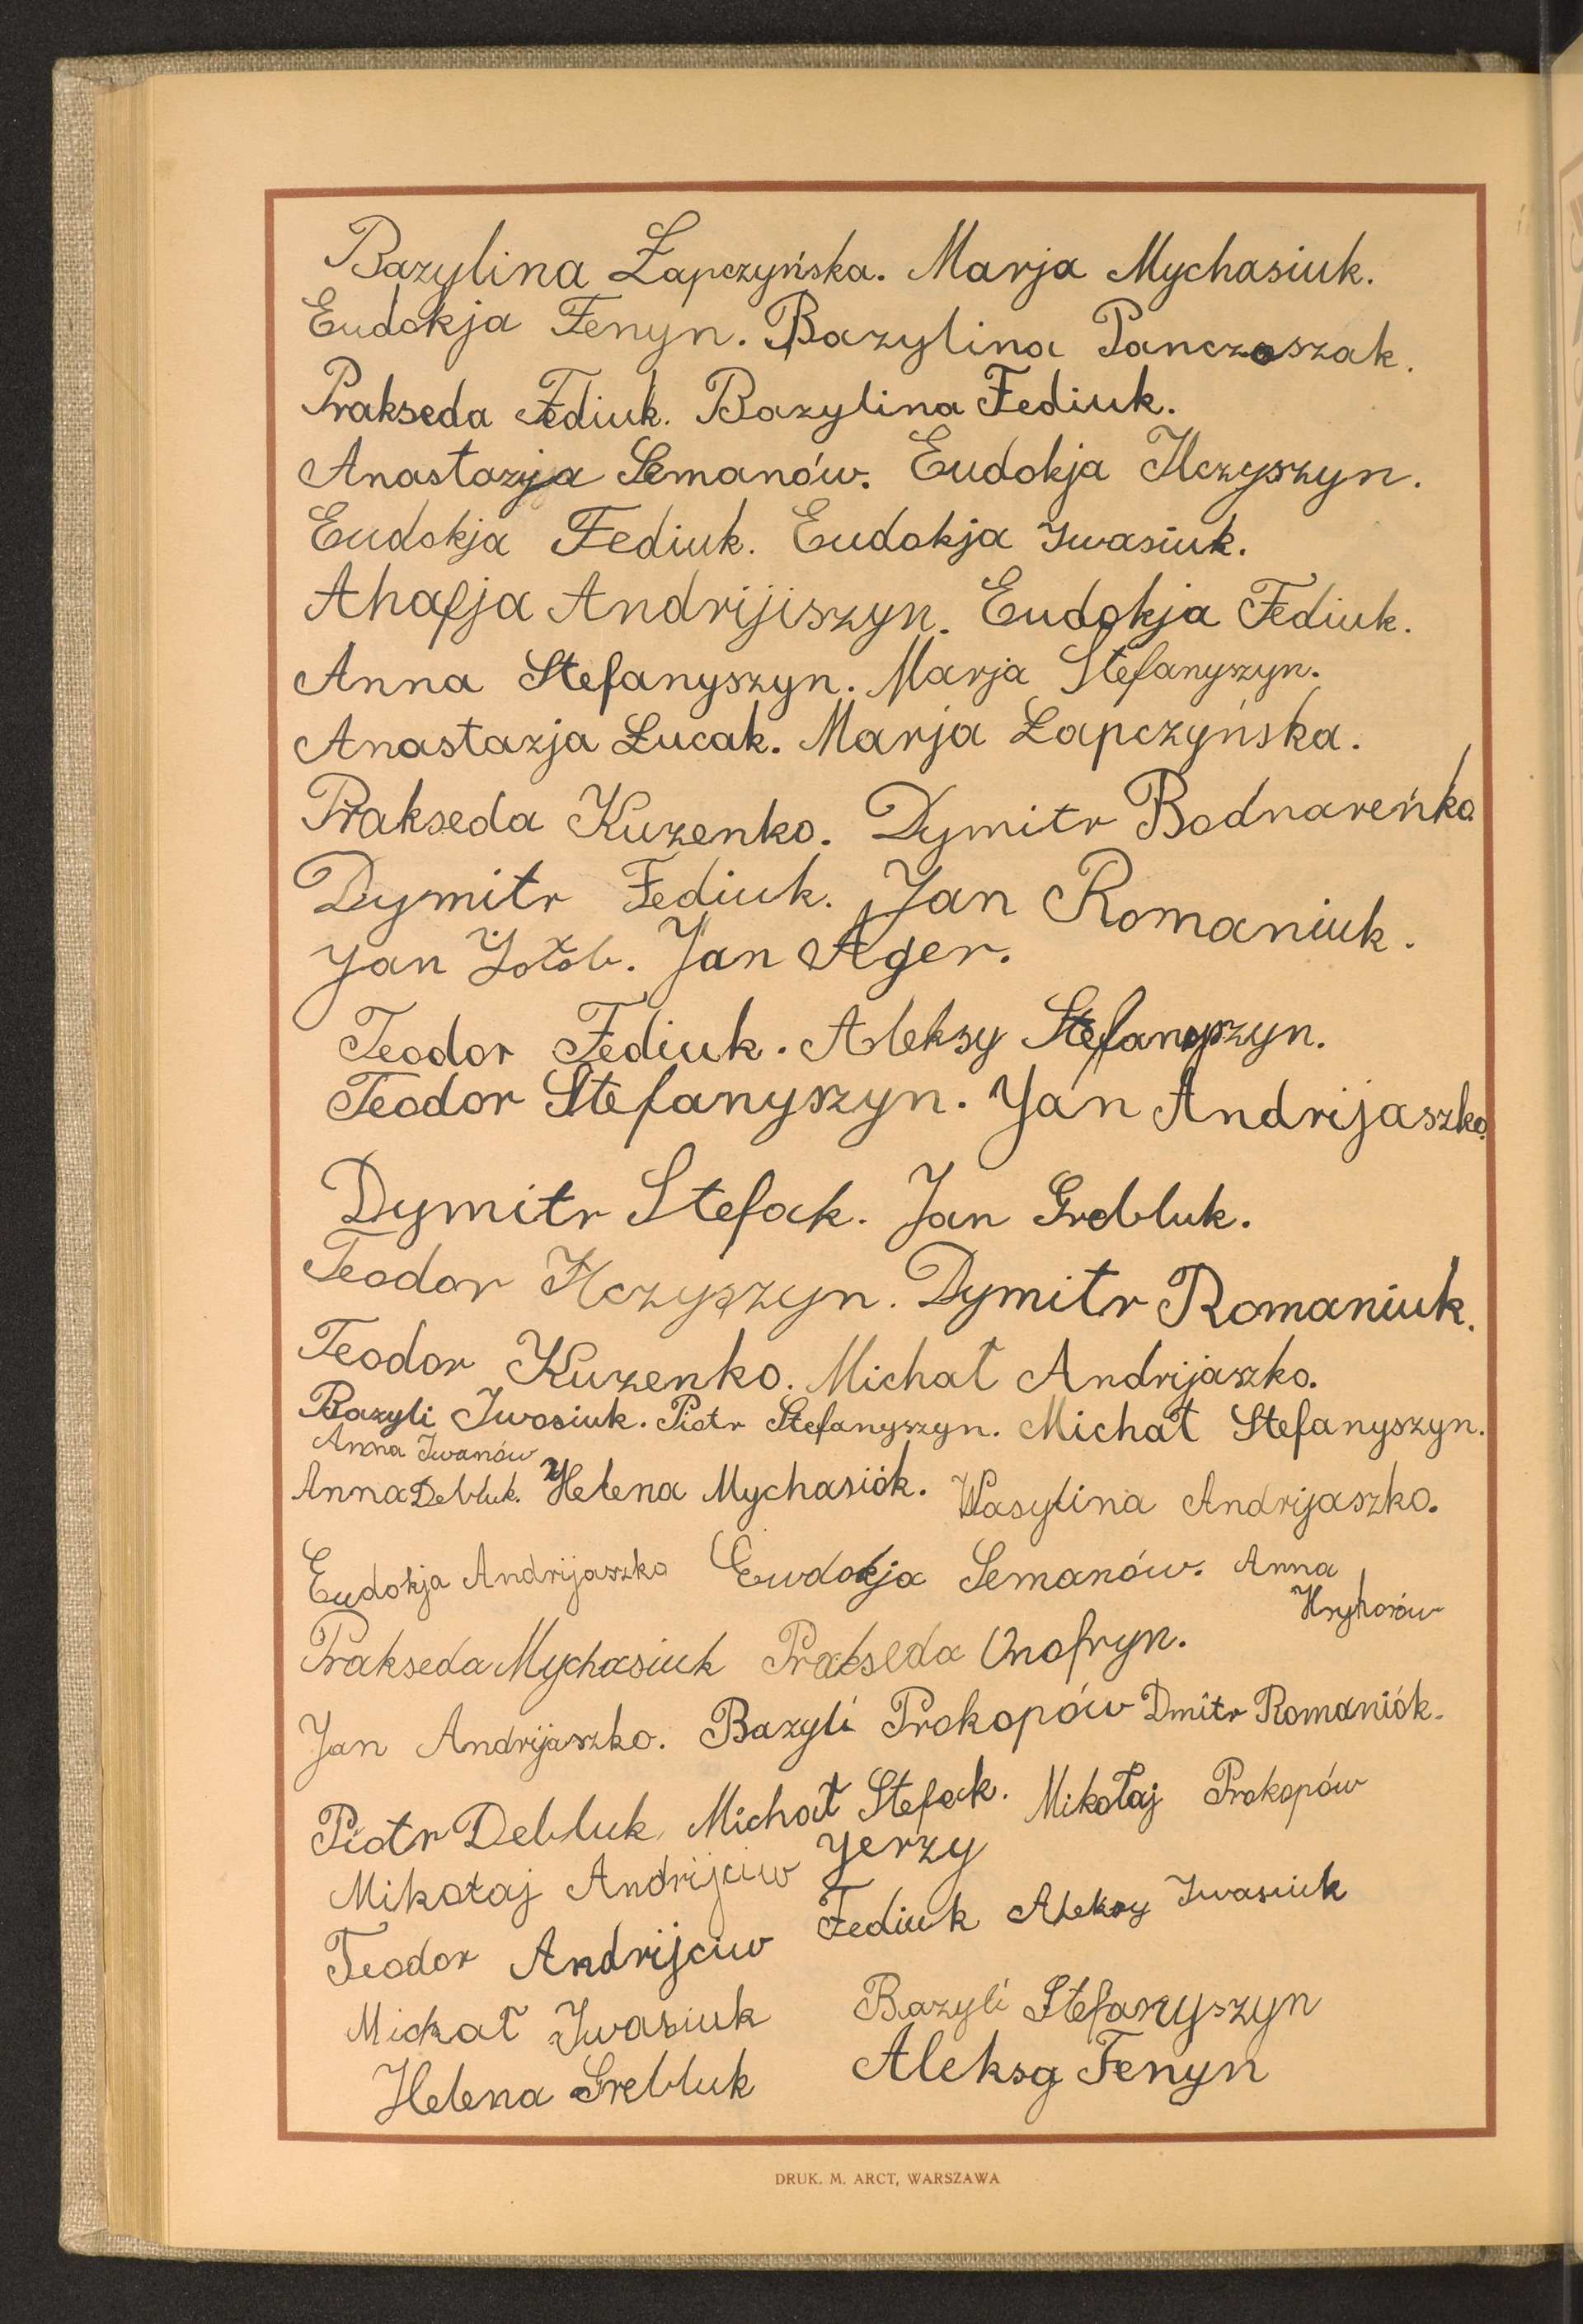 Bazylina Łapczyńska. Marja Mychasiuk.
Eudokja Fenyn. Bazylina Panczoszak.
Prakseda Fediuk. Bazylina Fediuk.
Anastazja Semanów. Eudokja Ilczyszyn.
Eudokja Fediuk. Eudokja Iwasiuk.
Ahafja Andrijiszyn. Eudokja Fediuk.
Anna Stefanyszyn. Marja Stefanyszyn.
Anastazja Łucak. Marja Łapczyńska.
Prakseda Kuzenko. Dymitr Bodnareńko
Dymitr Fediuk. Jan Romaniuk.
Jan Żołob. Jan Ager.
Teodor Fediuk. Aleksy Stefanyszyn.
Teodor Stefanyszyn. Jan Andrijaszko.
Dymitr Stefak. Jan Grebluk.
Teodor Ilczyszyn. Dymitr Romaniuk.
Teodor Kuzenko. Michał Andrijaszko.
Bazyli Iwasiuk. Piotr Stefanyszyn. Michał Stefanyszyn.
Anna Iwanów
Anna Debluk. Helena Mychasiók. Wasylina Andrijaszko.
Eudokja Andrijaszko Ewdokja Semanów. Anna
Hryhorów
Prakseda Mychasiuk Prakseda Onofryn.
Jan Andrijaszko. Bazyli Prokopów Dmitr Romaniók.
Piotr Debluk Michał Stefak. Mikołaj Prokopów
Mikołaj Andrijciw Jerzy
Teodor Andrijciw Fediuk Aleksy Iwasiuk
Michał Iwasiuk Bazyli Stefanyszyn
Helena Grebluk Aleksy Fenyn
DRUK. M. ARCT, WARSZAWA